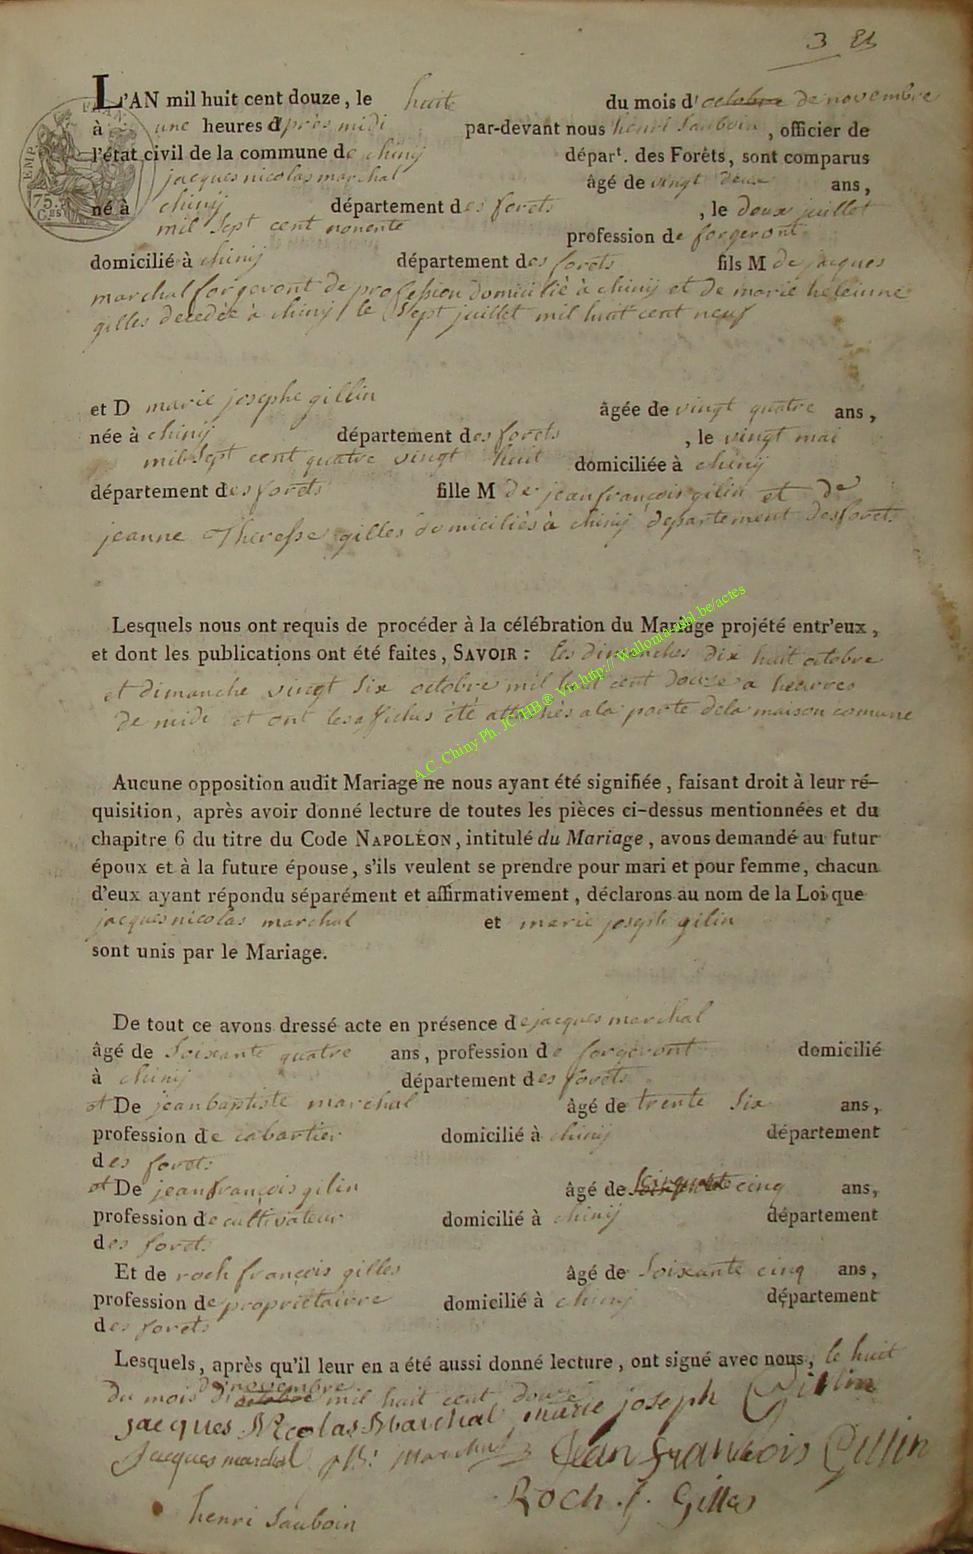 3
L'AN mil huit cent douze, le huit du mois d'octobre de novembre
à une heures après midi par-devant nous henri Sauboin, officier de
l'état civil de la commune de chinij départ. des Forêts, sont comparus
jacques nicolas marchal âgé de vingt deux ans,
né à chinij département des forets, le doux juillet
mil sept cent nonente profession de forgeront
domicilié à chinij département des forêts fils M de jacques
marchal forgeront de profession domicilié à chinij et de marie heleinne
gilles decedée à chinij le sept juillet mil huit cent neuf
et D marie josephe gillin âgée de vingt quatre ans,
née à chinij département des forets, le vingt mai
mil sept cent quatre vingt huit domiciliée à chinij
département des forêts fille M de jean françois gilin et de
jeanne Theresse gilles domiciliés à chinij departement des foret
Lesquels nous ont requis de procéder à la célébration du Mariage projété entr'eux,
et dont les publications ont été faites, SAVOIR : les dimanches dix huit octobre
et dimanche vingt six octobre mil huit cent douze a heurres
de midi et ont les affichés été attachés a la porte de la maison comune
A.C. Chiny Ph. JC HB® Via http://Wallonia-asbl.be/actes
Aucune opposition audit Mariage ne nous ayant été signifiée, faisant droit à leur ré-
quisition, après avoir donné lecture de toutes les pièces ci-dessus mentionnées et du
chapitre 6 du titre du Code NAPOLÉON, intitulé du Mariage, avons demandé au futur
époux et à la future épouse, s'ils veulent se prendre pour mari et pour femme, chacun
d'eux ayant répondu séparément et affirmativement, déclarons au nom de la Loi que
jacques nicolas marchal et marie joseph gilin
sont unis par le Mariage.
De tout ce avons dressé acte en présence de jacques marchal
âgé de Soixante quatre ans, profession de forgeront domicilié
à chinij département des forêts
et De jean baptiste marchal âgé de trente Six ans,
profession de cabartier domicilié à chinij département
des forets
et De jean françois gilin âgé de cinq ans,
profession de cultivateur domicilié à chinij département
des foret
Et de roch françois gilles âgé de Soixante cinq ans,
profession de proprietairre domicilié à chinij département
des forets
Lesquels, après qu'il leur en a été aussi donné lecture, ont signé avec nous, le huit
de novembre
du mois d'octobre mil huit cent douze
jacques Nicolas Marchal marie joseph Gillin
Jacques marchal Marchal Jean françois Gillin
Roch. f. Gilles
henri Sauboin